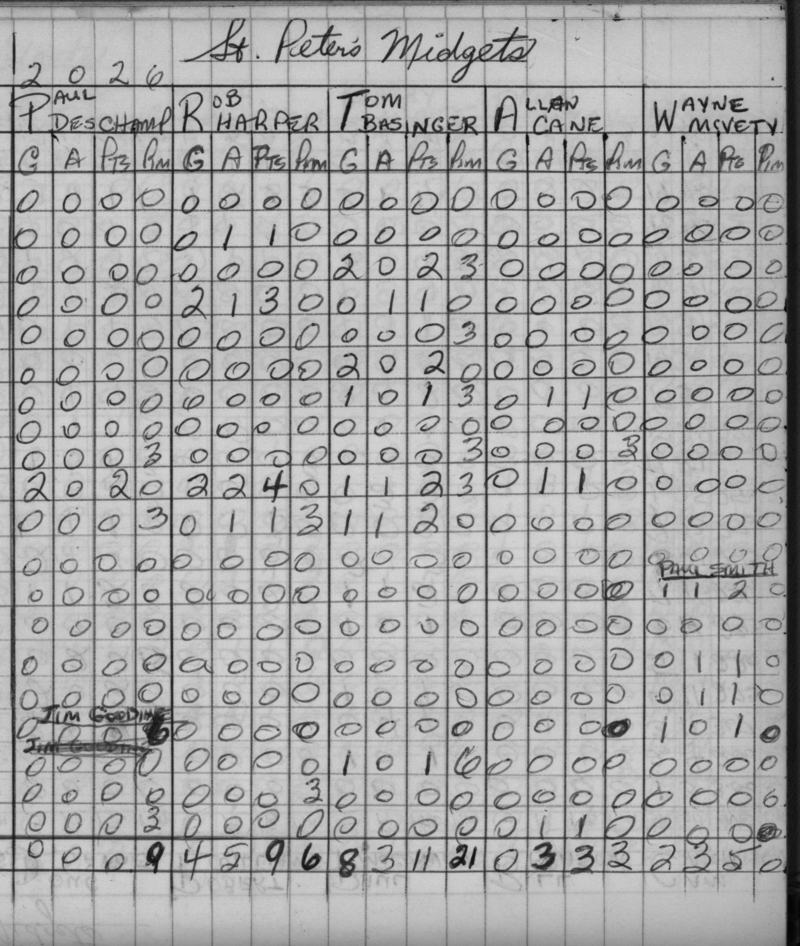 St. Peter's Midgets
2 0 2 6
PAUL DESCHAMP ROB HARPER TOM BASINGER ALLAN CANE WAYNE MCVETY
G A Pts Pim G A Pts Pim G A Pts Pim G A Pts Pim G A Pts Pim
0 0 0 0 0 0 0 0 0 0 0 0 0 0 0 0 0 0 0 0
0 0 0 0 0 1 1 0 0 0 0 0 0 0 0 0 0 0 0 0
0 0 0 0 0 0 0 0 2 0 2 3 0 0 0 0 0 0 0 0
0 0 0 0 2 1 3 0 0 1 1 0 0 0 0 0 0 0 0 0
0 0 0 0 0 0 0 0 0 0 0 3 0 0 0 0 0 0 0 0
0 0 0 0 0 0 0 0 2 0 2 0 0 0 0 0 0 0 0 0
0 0 0 0 0 0 0 0 1 0 1 3 0 1 1 0 0 0 0 0
0 0 0 0 0 0 0 0 0 0 0 0 0 0 0 0 0 0 0 0
0 0 0 3 0 0 0 0 0 0 0 3 0 0 0 3 0 0 0 0
2 0 2 0 2 2 4 0 1 1 2 3 0 1 1 0 0 0 0 0
0 0 0 3 0 1 1 3 1 1 2 0 0 0 0 0 0 0 0 0
0 0 0 0 0 0 0 0 0 0 0 0 0 0 0 0 0 0 0 0
PAUL SMITH
0 0 0 0 0 0 0 0 0 0 0 0 0 0 0 0 1 1 2 0
0 0 0 0 0 0 0 0 0 0 0 0 0 0 0 0 0 0 0 0
0 0 0 0 0 0 0 0 0 0 0 0 0 0 0 0 0 1 1 0
0 0 0 0 0 0 0 0 0 0 0 0 0 0 0 0 0 1 1 0
JIM GOODINE
0 0 0 6 0 0 0 0 0 0 0 0 0 0 0 0 1 0 1 0
JIM GOODINE
0 0 0 0 0 0 0 0 1 0 1 6 0 0 0 0 0 0 0 0
0 0 0 0 0 0 0 3 0 0 0 0 0 0 0 0 0 0 0 0
0 0 0 3 0 0 0 0 0 0 0 0 0 1 1 0 0 0 0 0
0 0 0 9 4 5 9 6 8 3 11 21 0 3 3 3 2 3 5 0